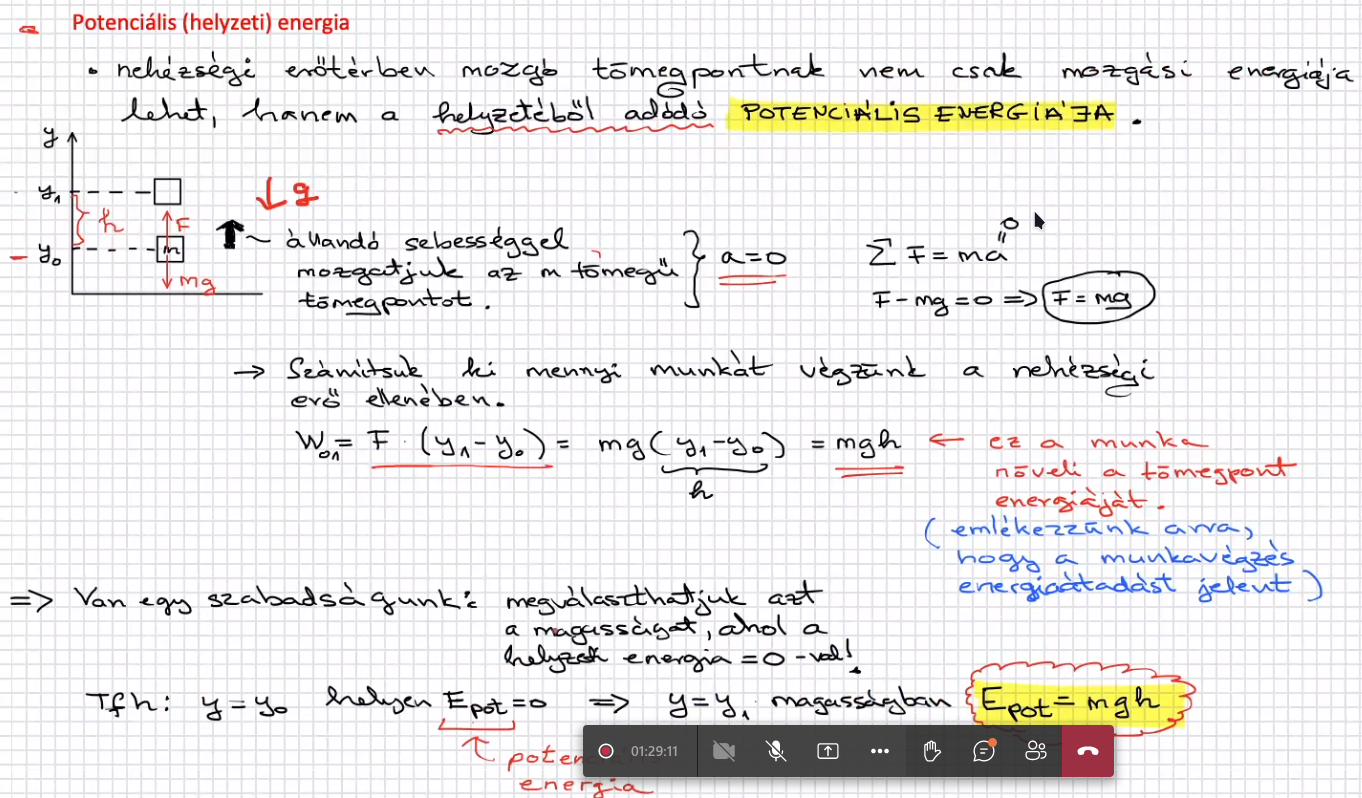 Potenciális (helyzeti) energia
• nehézségi erőtérben mozgó tömegpontnak nem csak mozgási energiája
lehet, hanem a helyzetéből adódó POTENCIÁLIS ENERGIÁJA.
y
y₁
h
F
↓ g
y₀
m
mg
~ állandó sebességgel
mozgatjuk az m tömegű
tömegpontot.
} a=0
Σ F = ma
0
F - mg = 0 => F = mg
→ Számítsuk ki mennyi munkát végzünk a nehézségi
erő ellenében.
W₀₁ = F · (y₁ - y₀) = mg(y₁ - y₀) = mgh ← ez a munka
h
növeli a tömegpont
energiáját.
(emlékezzünk arra,
hogy a munkavégzés
energiaátadást jelent)
=> Van egy szabadságunk: megválaszthatjuk azt
a magasságot, ahol a
helyzeti energia = 0 -val!
Tfh: y = y₀ helyen Epot = 0 => y = y₁ magasságban Epot = mgh
energia
01:29:11